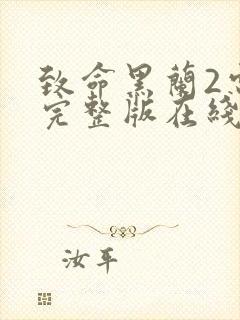 致命黑蘭2
完整版在綫
汝平